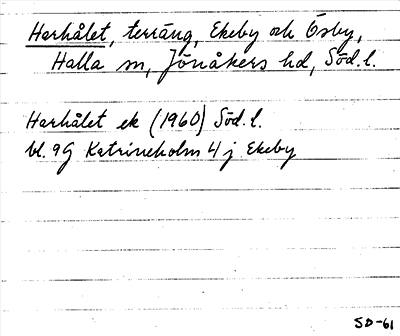 Harhålet, terräng, Ekeby och Ösby,
Halla sn, Jönåkers hd, Söd. l.
Harhålet ek (1960) Söd. l.
bl. 9G Katrineholm 4 j Ekeby
SD-61